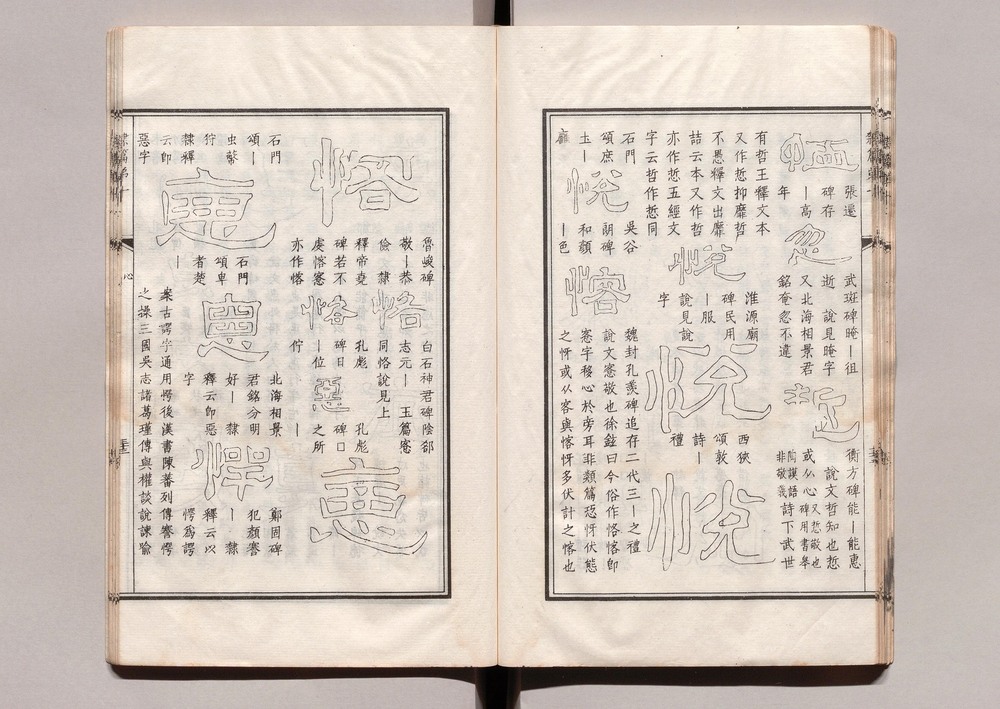 恤
張遷
碑存
｜高
年
忽
武斑碑晻｜徂
逝 說見晻字
又北海相景君
銘奄忽不違
悊
衡方碑能｜能惠
說文哲知也悊
或从心 又悊敬也
碑用書皋
陶謨語
非敬義 詩下武世
有哲王釋文本
又作悊抑靡哲
不愚釋文出靡
詰云本又作哲
亦作悊五經文
字云哲作悊同
悅
淮源廟
碑民用
｜服
說見說
字
悅
西狹
頌敦
詩｜
禮
悅
石門
頌庶
土｜
靡
悅
吳谷
朗碑
和顏
｜色
愘
魏封孔羨碑追存二代三｜之禮
說文愙敬也徐鉉曰今俗作恪愘即
愙字移心於旁耳非類篇恐伢伏態
之伢或从客與愘伢多伏計之愘也
愘
魯峻碑
敬｜恭
儉 隸
釋帝堯
碑若不
虔愘愙
亦作愘
恪
白石神君碑陰郤
志元｜ 玉篇愙
同恪說見上
恪
孔彪
碑日
｜位
佇
惡
孔彪
碑口
之所
｜
惡
石門
頌｜
虫蔕
狩
隸釋
云即
惡字
惡
石門
頌卑
者楚
｜
惡
北海相景
君銘分明
好｜ 隸
釋云即惡
字
愕
鄭固碑
犯顏謇
｜ 隸
釋云以
愕爲諤
案古諤字通用愕後漢書陳蕃列傳謇愕
之操三國吳志諸葛瑾傳與權談說諫喻
心